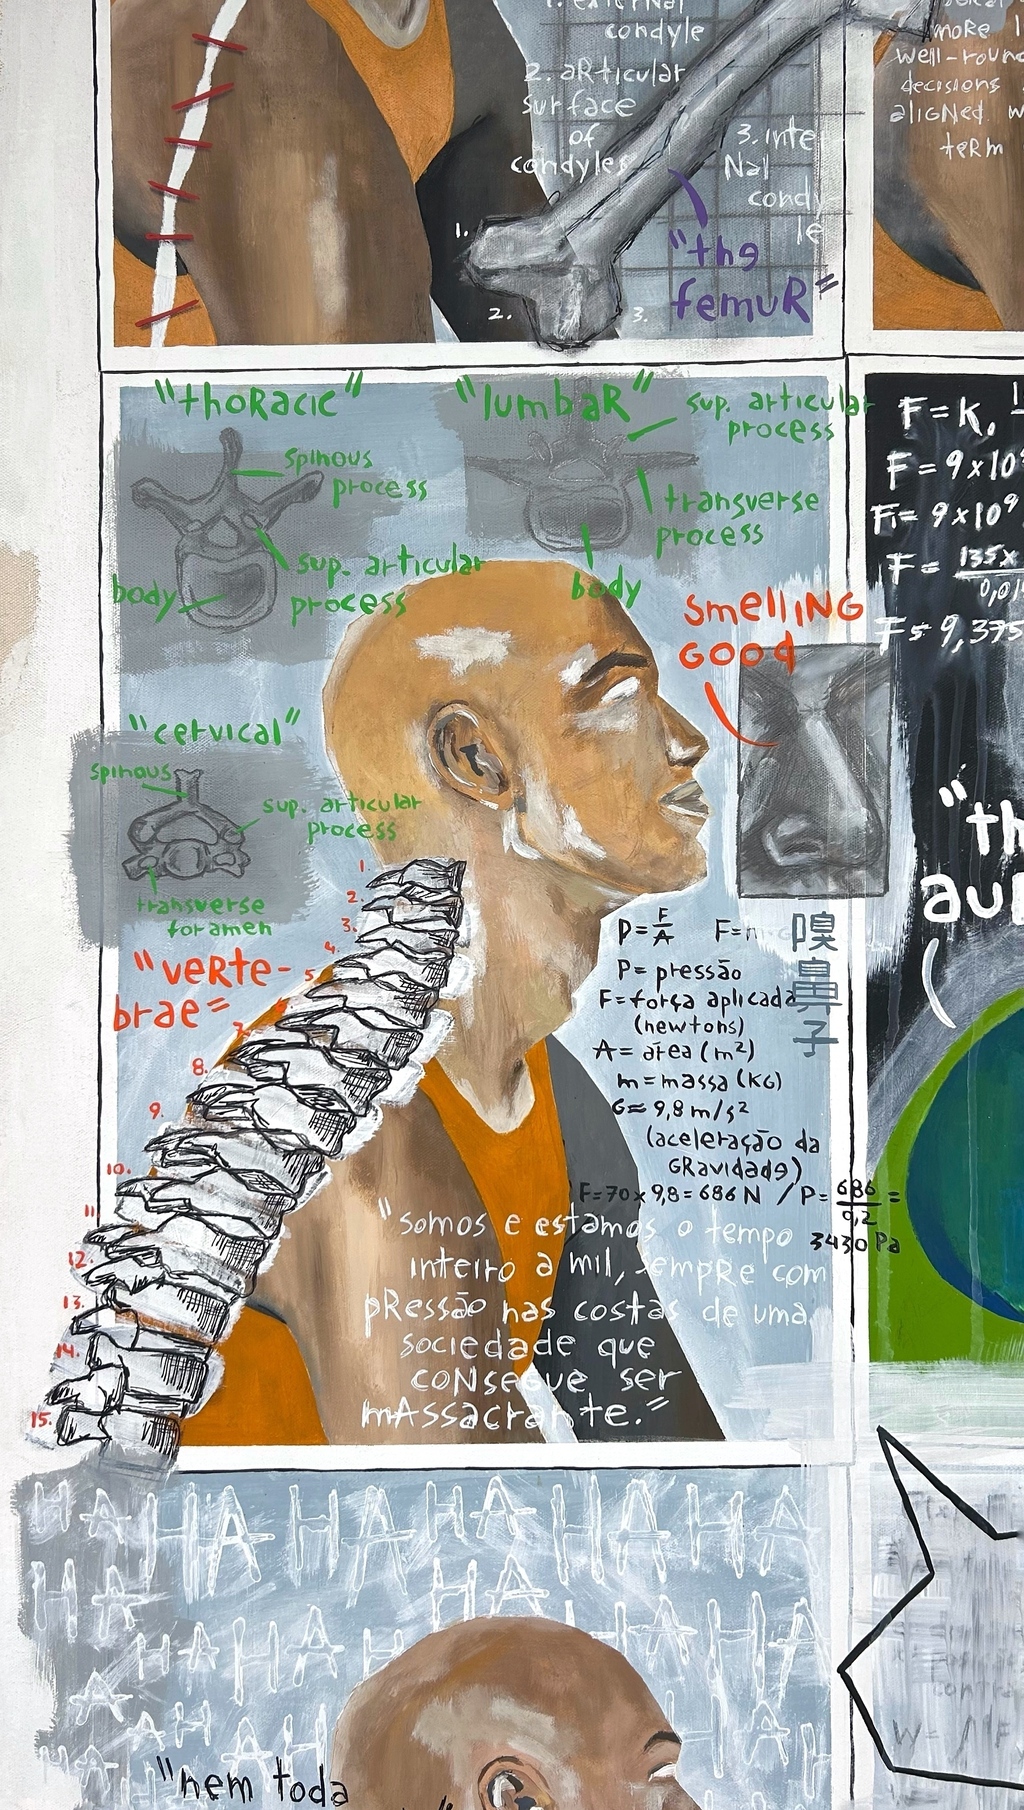 1. external
condyle
2. articular
surface
of
condyles
3. inte
nal
condy
le
1.
2.
3.
"the
femur"
more
well-roun
decisions
aligned w
term
"thoracic"
spinous
process
sup. articular
process
body
"lumbar"
sup. articular
process
transverse
process
body
F=K.
F=9x10
F=9x10⁹
F=135x
F=9,375
smelling
good
"cervical"
spinous
sup. articular
process
transverse
foramen
"verte-
brae"
1.
2.
3.
4.
5.
7.
8.
9.
10.
11.
12.
13.
14.
15.
P=F/A F=
P=pressão
F=força aplicada
(newtons)
A=área (m²)
m=massa (KG)
G≈9,8m/s²
(aceleração da
gravidade)
F=70x9,8=686N / P=686/0,2=
3430Pa
嗅
鼻
子
"somos e estamos o tempo
inteiro a mil, sempre com
pressão nas costas de uma
sociedade que
consegue ser
massacrante."
"th
au
HA HA HA HA HA HA
HA HA
HAHAHAH
HA
"nem toda
contra
W=